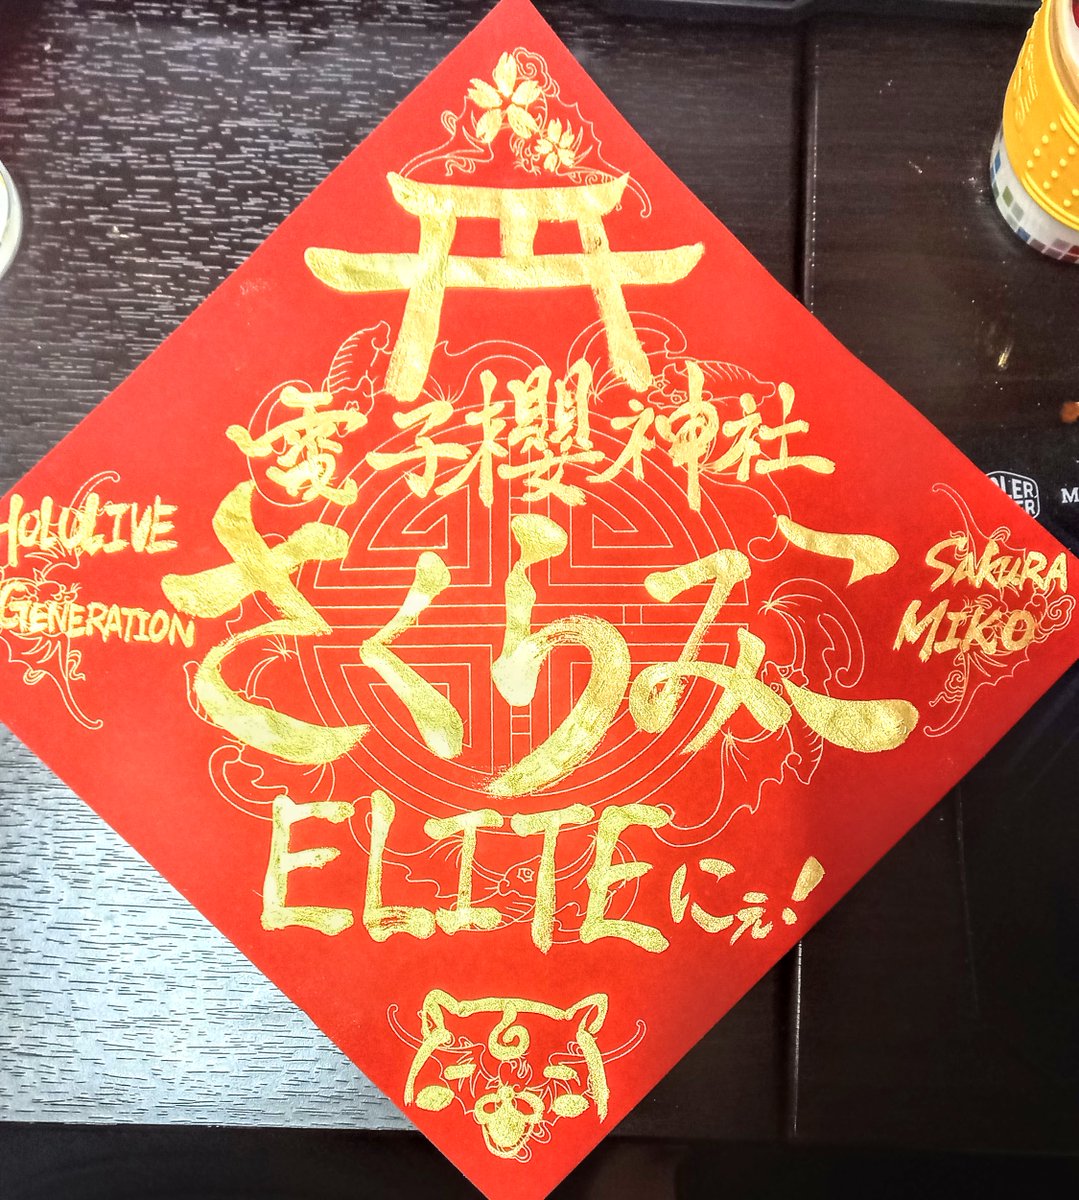 電子櫻神社
HOLOLIVE
GENERATION
さくらみこ
SAKURA
MIKO
ELITEにぇ!